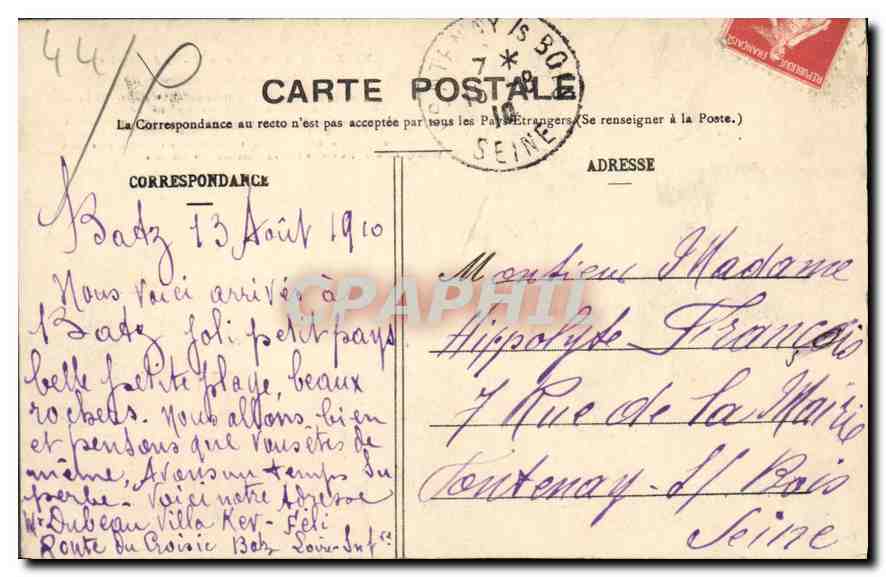 44
CARTE POSTALE
La Correspondance au recto n'est pas acceptée par tous les Pays Etrangers (Se renseigner à la Poste.)
SEINE
REPUBLIQUE FRANÇAISE
CORRESPONDANCE
Batz 13 Août 1910
Nous voici arrivés à
Batz joli petit pays
belle petite plage, beaux
rochers. Nous allons bien
et pensons que vous êtes de
même, Avons un temps su
perbe. Voici notre Adresse
Mr Dubeau Villa Ker-Féli
Route du Croisic Batz Loire-Infre
ADRESSE
Monsieur Madame
Hippolyte François
7 Rue de la Mairie
Fontenay S/ Bois
Seine
CPAPHIL